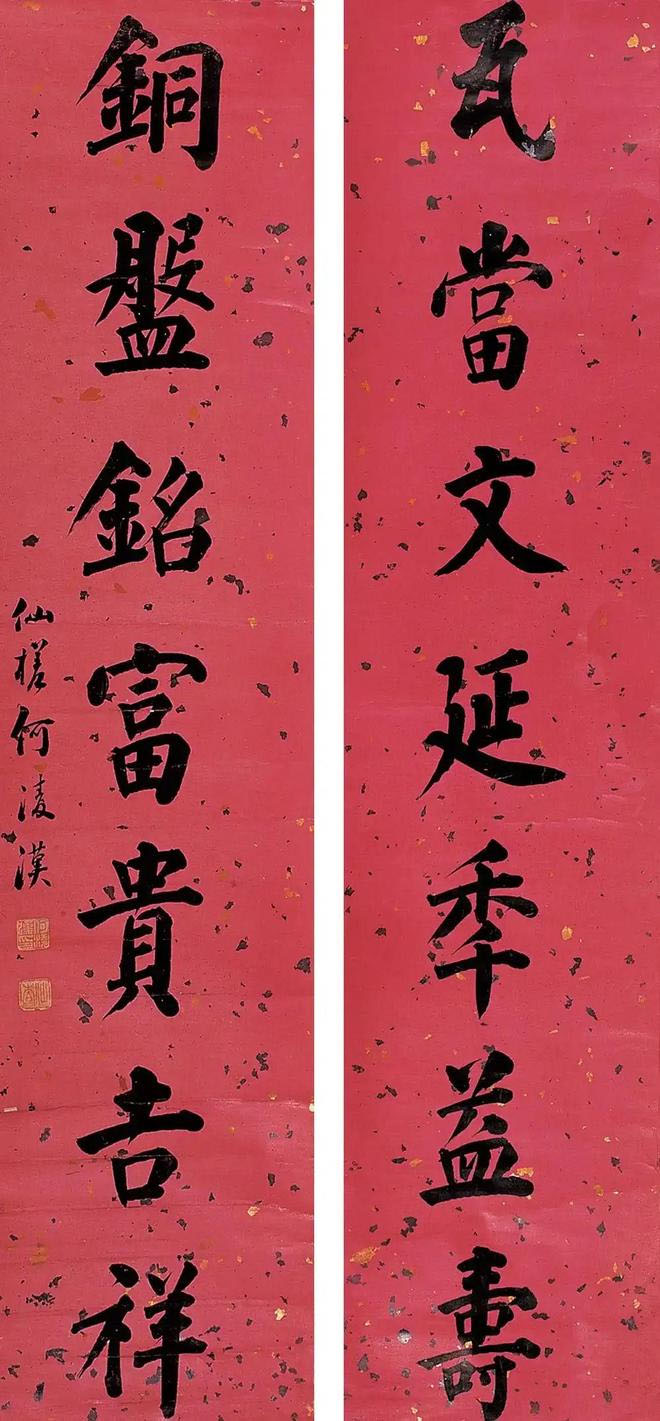 瓦當文延秊益壽
銅盤銘富貴吉祥
仙槎何淩漢